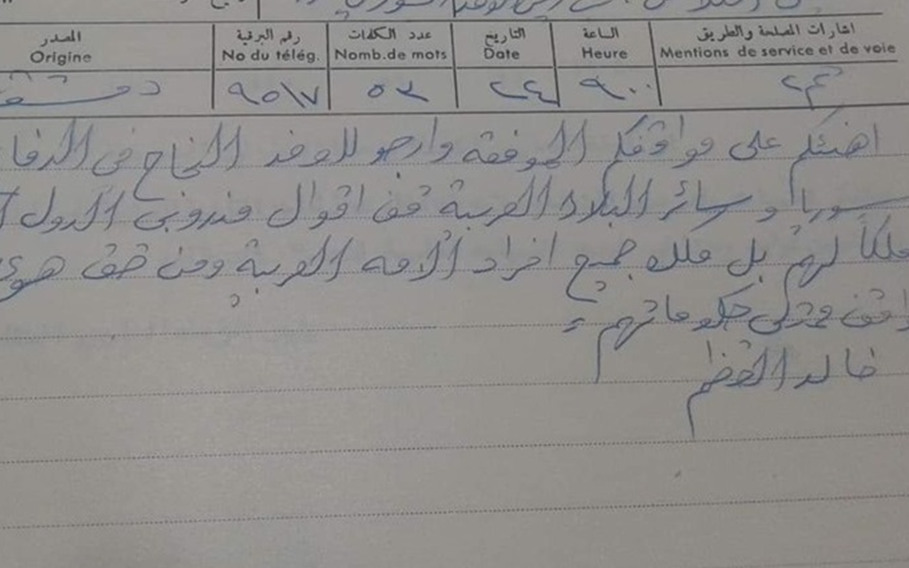 اشارات المصلحة والطريق الساعة التاريخ عدد الكلمات رقم البرقية المصدر
Mentions de service et de voie Heure Date Nomb.de mots No du télég. Origine
٩٠٠ ٢٤ ٥٢ ٩٥١٧ دمشق
اهنئكم على مواقفكم الموفقة وارجو للوفد النجاح في الدفا
سوريا وسائر البلاد العربية قف اقوال مندوبي الدول
ملكاً لهم بل ملك جميع افراد الأمه العربية ومن حق
حكوماتهم
خالد العظم